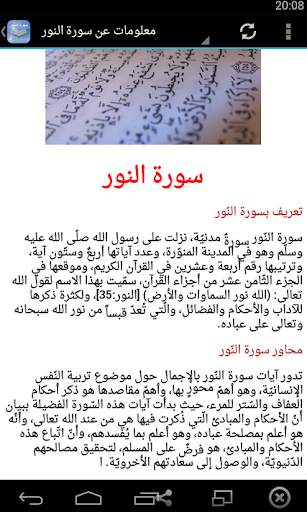 20:08
معلومات عن سورة النور
سورة النور
تعريف بسورة النّور
سورة النّور سورةٌ مدنيّة، نزلت على رسول الله صلّى الله عليه
وسلّم وهو في المدينة المنوّرة، وعدد آياتها أربعٌ وستّون آية،
وترتيبها رقم أربعة وعشرين في القرآن الكريم، وموقعها في
الجزء الثّامن عشر من أجزاء القرآن، سمّيت بهذا الاسم لقول الله
تعالى: (الله نور السماوات والأرض) [النور:35]، ولكثرة ذكرها
للآداب والأحكام والفضائل، والّتي تُعدّ قبساً من نور الله سبحانه
وتعالى على عباده.
محاور سورة النّور
تدور آيات سورة النّور بالإجمال حول موضوع تربية النّفس
الإنسانيّة، وهو أهمّ محورٍ بها، وأهمّ مقاصدها هو ذكر أحكام
العفاف والسّتر للمرء، حيث بدأت آيات هذه السّورة الفضيلة ببيان
أنّ الأحكام والمبادئ الّتي ذُكرت فيها هي من عند الله تعالى، وأنّه
هو أعلم بمصلحة عباده، وهو أعلم بما يُفسدهم، وأنّ اتّباع هذه
الأحكام والمبادئ هو فرضٌ على المسلم، لتحقيق مصالحهم
الدّنيويّة، والوصول إلى سعادتهم الأخرويّة. ا